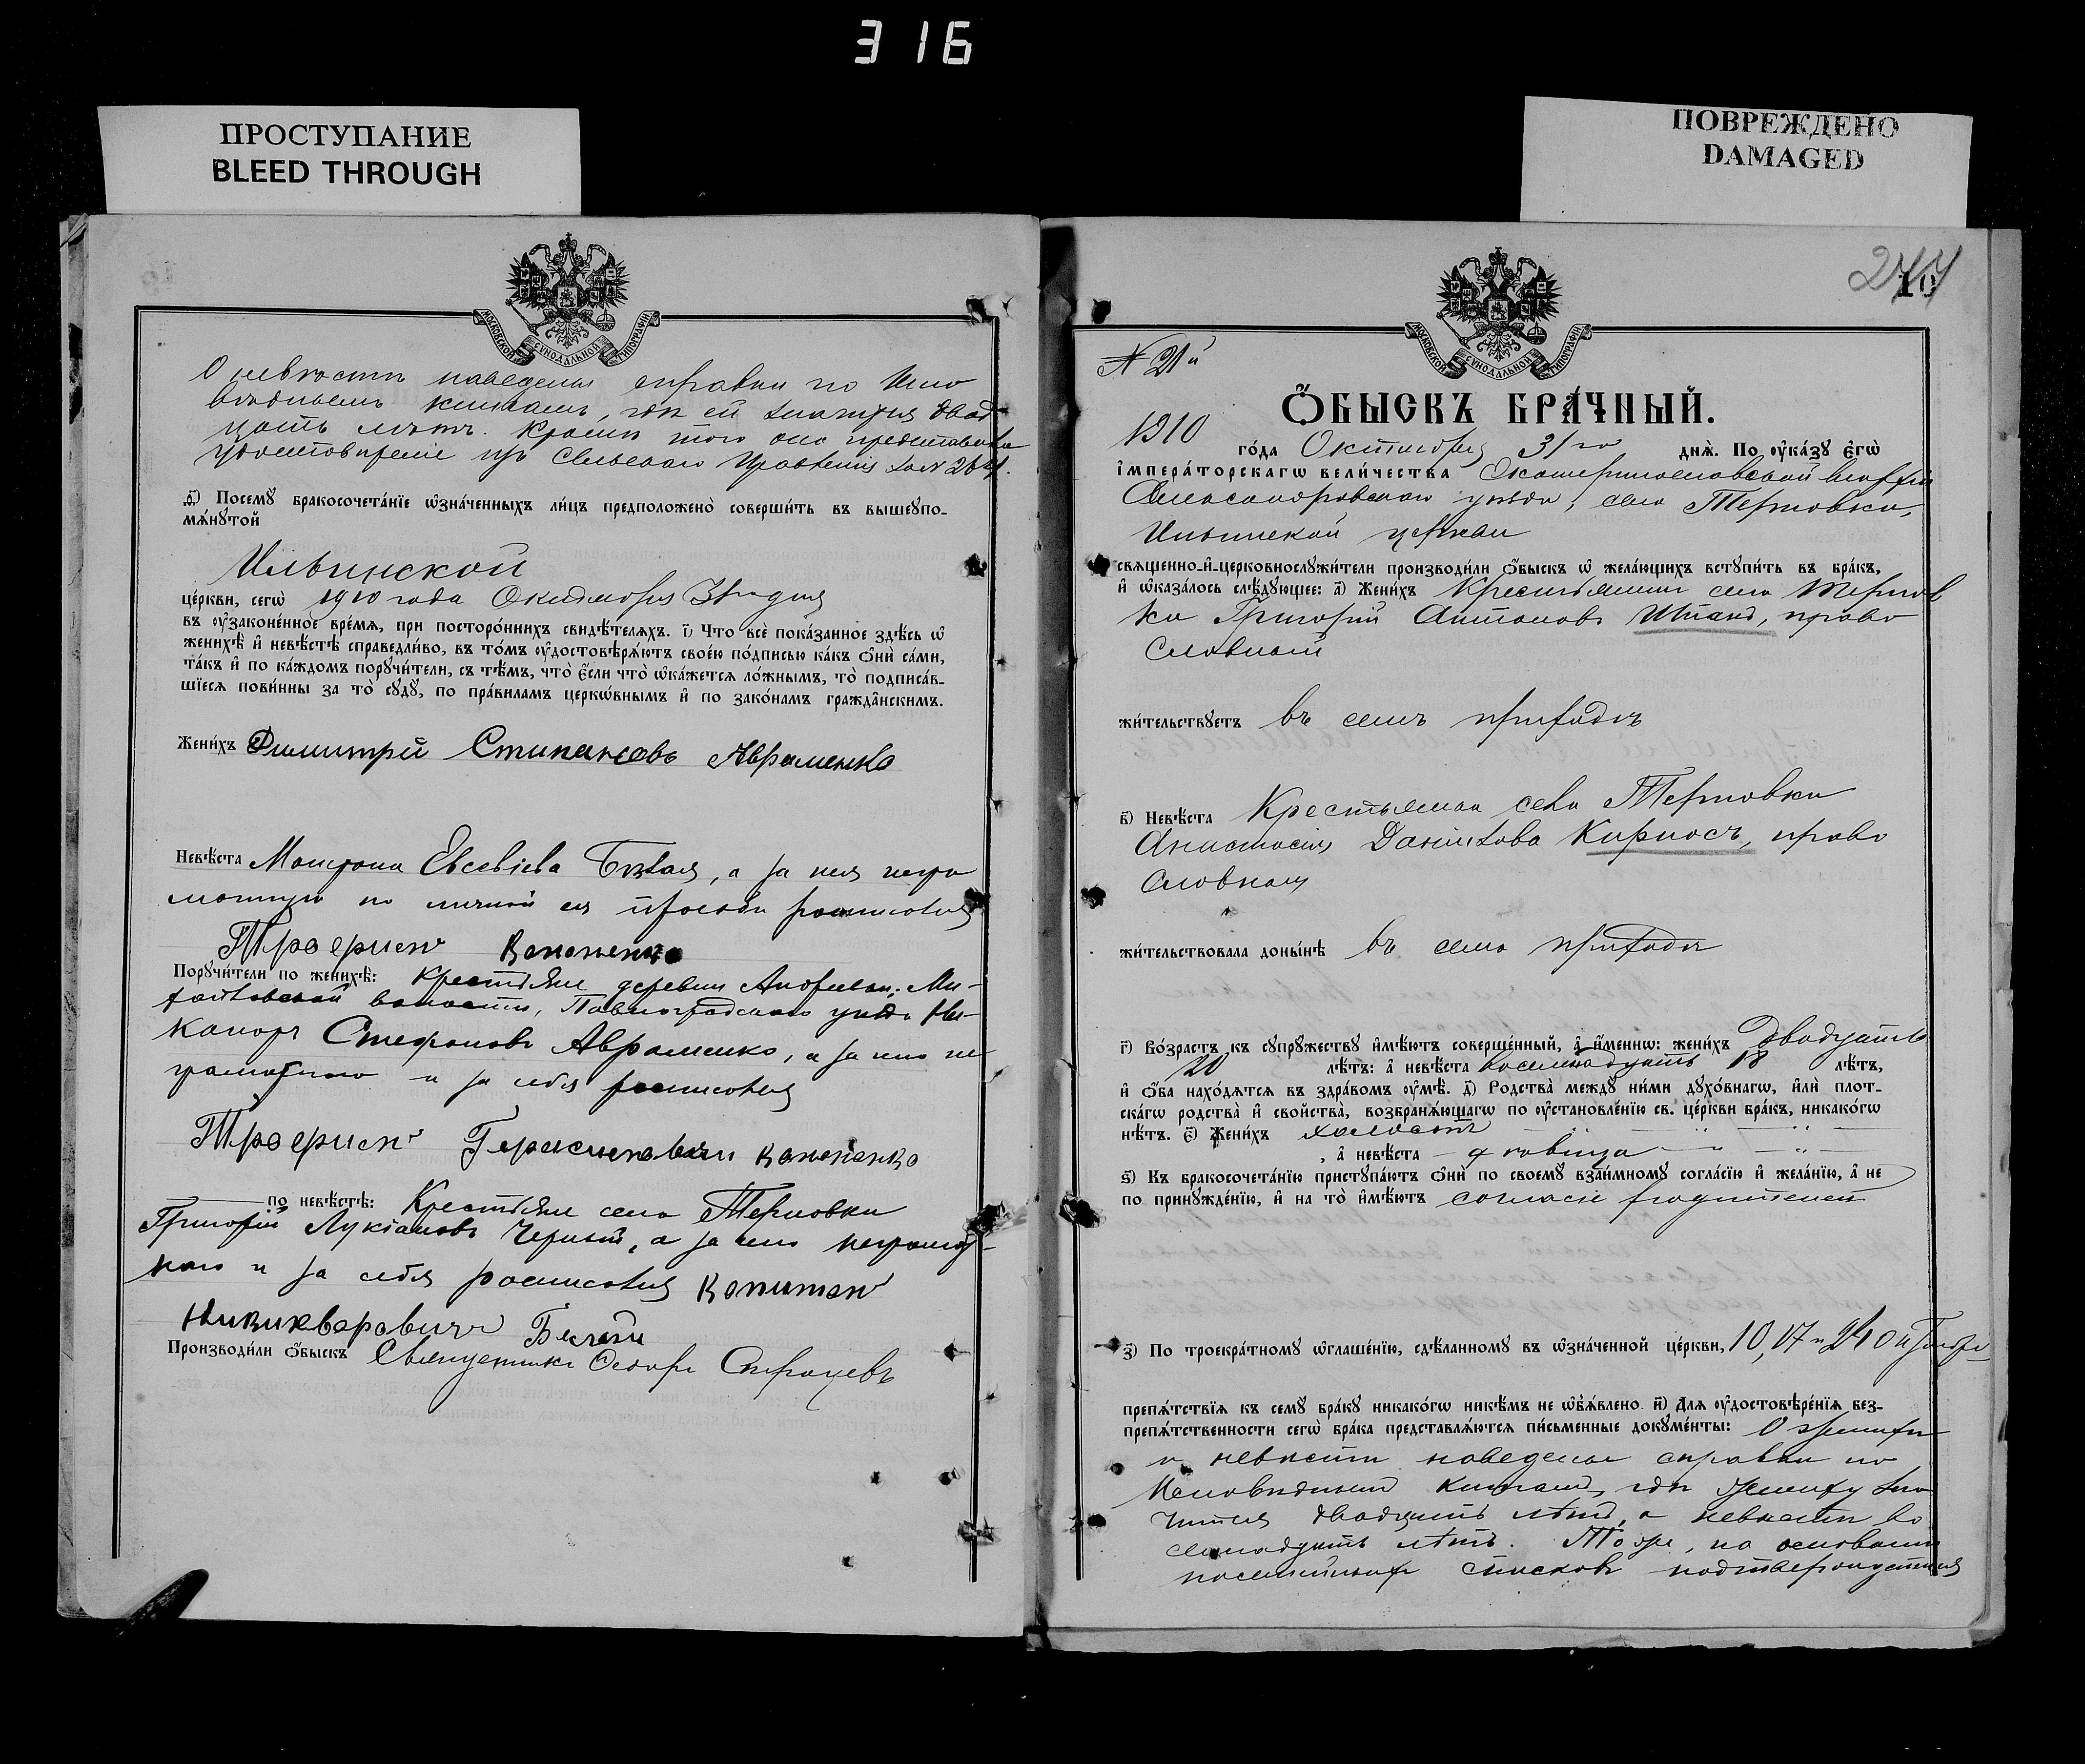 316
ПРОСТУПАНИЕ
BLEED THROUGH
ПОВРЕЖДЕНО
DAMAGED
МОСКОВСКОЙ СѴНОДАЛЬНОЙ ТИПОГРАФІИ
О невѣсте наведены справки по Испо
вѣднымъ книгамъ, где ей значится двад
цать летъ. Кроме того она представила
удостовѣреніе изъ Сельскаго Правленія за №
д҃) Посемꙋ бракосочета́нїе ѡ҆зна́ченныхъ ли́цъ предположено̀ соверши́ть въ вышеꙋпо-
мѧ́нꙋтой
Ильинской
це́ркви, сегѡ̀ 1910 года Октября 31го дня
въ ᲂу҆зако́ненное вре́мѧ, при посторо́ннихъ свидѣ́телѧхъ. і҃) Что̀ всѐ пока́занное здѣ́сь ѡ҆
женихѣ̀ и҆ невѣ́стѣ справедли́во, въ то́мъ ᲂу҆достовѣрѧ́ютъ свое́ю по́дписью ка́къ ѻ҆нѝ са́ми,
та́къ и҆ по ка́ждомъ порꙋчи́тели, съ тѣ́мъ, что̀ є҆́сли что̀ ѡ҆ка́жетсѧ ло́жнымъ, то̀ подписа́в-
шїесѧ пови́нны за то̀ сꙋдꙋ̀, по пра́виламъ церкѡ́внымъ и҆ по зако́намъ гражда́нскимъ.
Жени́хъ Димитрій Стипановъ Авраменко
Невѣ́ста Матрона Евсевіева Бѣлая, а за нея негра
мотную по личной ея просьбе росписался
Трофимъ Кононенко
Порꙋчи́тели по женихѣ̀: Крестьяне деревни Андреевки, Ми-
хайловской волости, Павлоградскаго уезда Ни-
каноръ Стефановъ Авраменко, а за него не
грамотнаго и за себя росписался
Трофимъ Герасимовичъ Кононенко
по невѣ́стѣ: Крестьяне села Терновки
Григорій Лукіановъ Черный, а за него неграмот-
наго и за себя росписался Капитонъ
Белый
Производи́ли ѻ҆́быскъ Священникъ Ѳеодоръ
10
№ 21й
МОСКОВСКОЙ СѴНОДАЛЬНОЙ ТИПОГРАФІИ
Ѻ҆́БЫСКЪ БРА́ЧНЫЙ.
1910 го́да Октября 31го днѧ̀. По ᲂу҆ка́зꙋ є҆гѡ̀
і҆мпера́торскагѡ вели́чества Екатеринославской
Александровскаго уезда, села Терновки,
Ильинской церкви
свѧщенно-и҆-церковнослꙋжи́тели производи́ли ѻ҆́быскъ ѡ҆ жела́ющихъ встꙋпи́ть въ бра́къ,
и҆ ѡ҆каза́лось слѣ́дꙋющее: а҃) Жени́хъ Крестьянинъ села Тернов
ки Григорій Антоновъ Штанд, право
славный
жи́тельствꙋетъ въ семъ приходе
в҃) Невѣ́ста Крестьянка села Терновки
Анастасія Даніилова Кирносъ, право
славная
жи́тельствовала доны́нѣ въ семъ приходе
г҃) Во́зрастъ къ сꙋпрꙋ́жествꙋ и҆мѣ́ютъ соверше́нный, а҆ и҆́меннѡ: жени́хъ Двадцать
20 лѣ́тъ: а҆ невѣ́ста восемнадцать 18 лѣ́тъ,
и҆ ѻ҆́ба нахо́дѧтсѧ въ здра́вомъ ᲂу҆мѣ̀. д҃) Родства̀ междꙋ ни́ми дꙋхо́внагѡ, и҆лѝ плот-
ска́гѡ родства̀ и҆ свойства̀, возбранѧ́ющагѡ по ᲂу҆становле́нїю св. це́ркви бра́къ, никако́гѡ
нѣ́тъ. є҃) Жени́хъ холостъ
, а҆ невѣ́ста девица
ѕ҃) Къ бракосочета́нїю пристꙋпа́ютъ ѻ҆нѝ по своемꙋ̀ взаи́мномꙋ согла́сїю и҆ жела́нїю, а҆ не
по принꙋжде́нїю, и҆ на то̀ и҆мѣ́ютъ согласіе родителей
з҃) По троекра́тномꙋ ѡ҆глаше́нїю, сдѣ́ланномꙋ въ ѡ҆зна́ченной це́ркви, 10, 17 и 24 октября
препѧ́тствїѧ къ семꙋ̀ бра́кꙋ никако́гѡ никѣ́мъ не ѡ҆б̾ѧ́влено. и҃) Длѧ ᲂу҆достовѣре́нїѧ без-
препѧ́тственности сегѡ̀ бра́ка представлѧ́ютсѧ пи́сьменные докꙋме́нты: О женихе
и невѣсте наведены справки по
Исповѣднымъ книгамъ, где жениху зна
чится двадцать лѣтъ, а невѣсте во
семнадцать лѣтъ. Тоже, на основаніи
посемейныхъ списковъ подтверждается